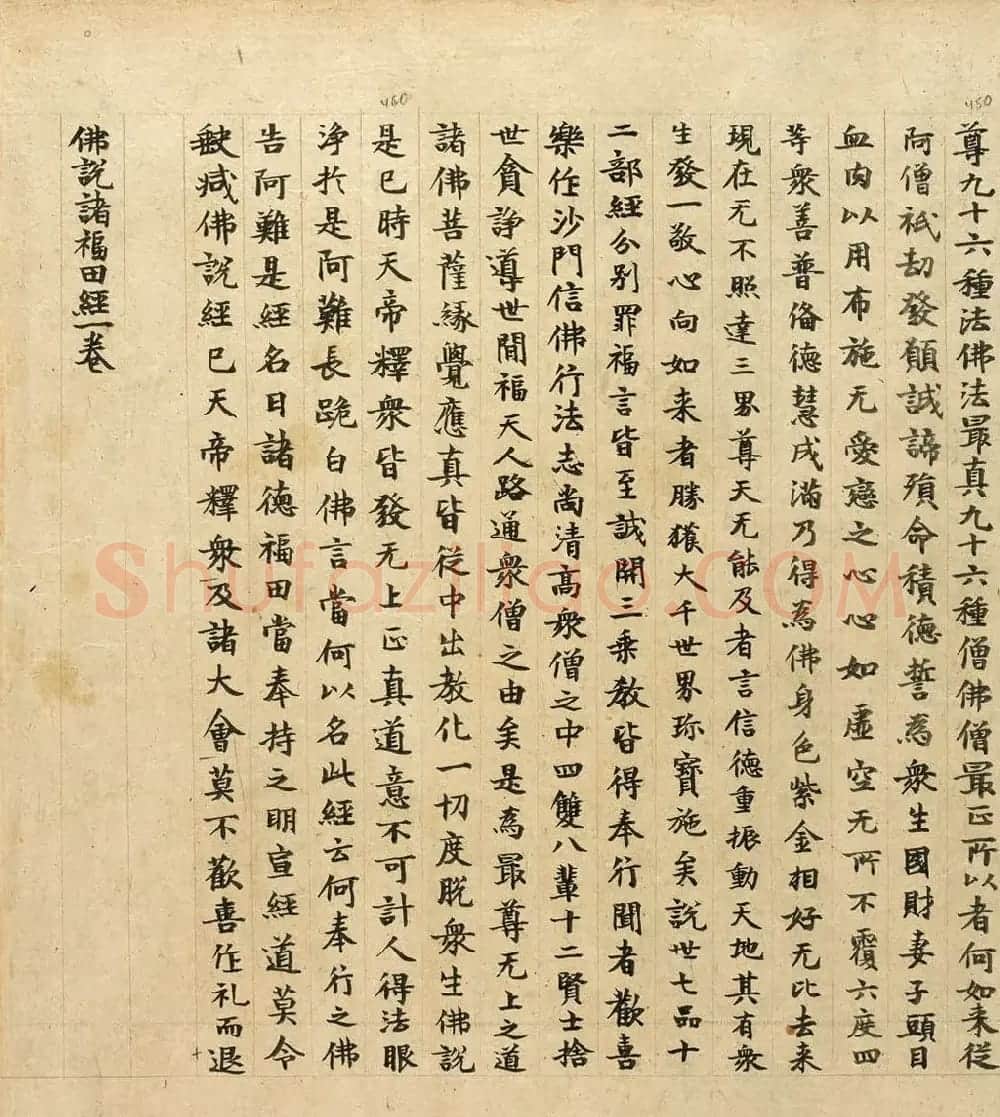 尊九十六種法佛法最真九十六種僧佛僧最正所以者何如来従
阿僧祇劫發願誠諦殞命積德誓為衆生國財妻子頭目
血肉以用布施无愛戀之心心如虛空无所不覆六度四
等衆善普俻德慧成滿乃得為佛身色紫金相好无比去来
現在无不照達三界尊天无能及者言信德重振動天地其有衆
生發一敬心向如来者勝獲大千世界珎寶施矣說世七品十
二部經分別罪福言皆至誠開三乗教皆得奉行聞者歡喜
樂作沙門信佛行法志尚清高衆僧之中四雙八輩十二賢士捨
世貪諍導世間福天人路通衆僧之由矣是為最尊无上之道
諸佛菩薩緣覺應真皆従中出教化一切度脫衆生佛說
是已時天帝釋衆皆發无上正真道意不可計人得法眼
淨於是阿難長跪白佛言當何以名此經云何奉行之佛
告阿難是經名曰諸德福田當奉持之明宣經道莫令
缺減佛說經已天帝釋衆及諸大會莫不歡喜作礼而退
佛說諸福田經一卷
450
460
Shufaziliao.COM